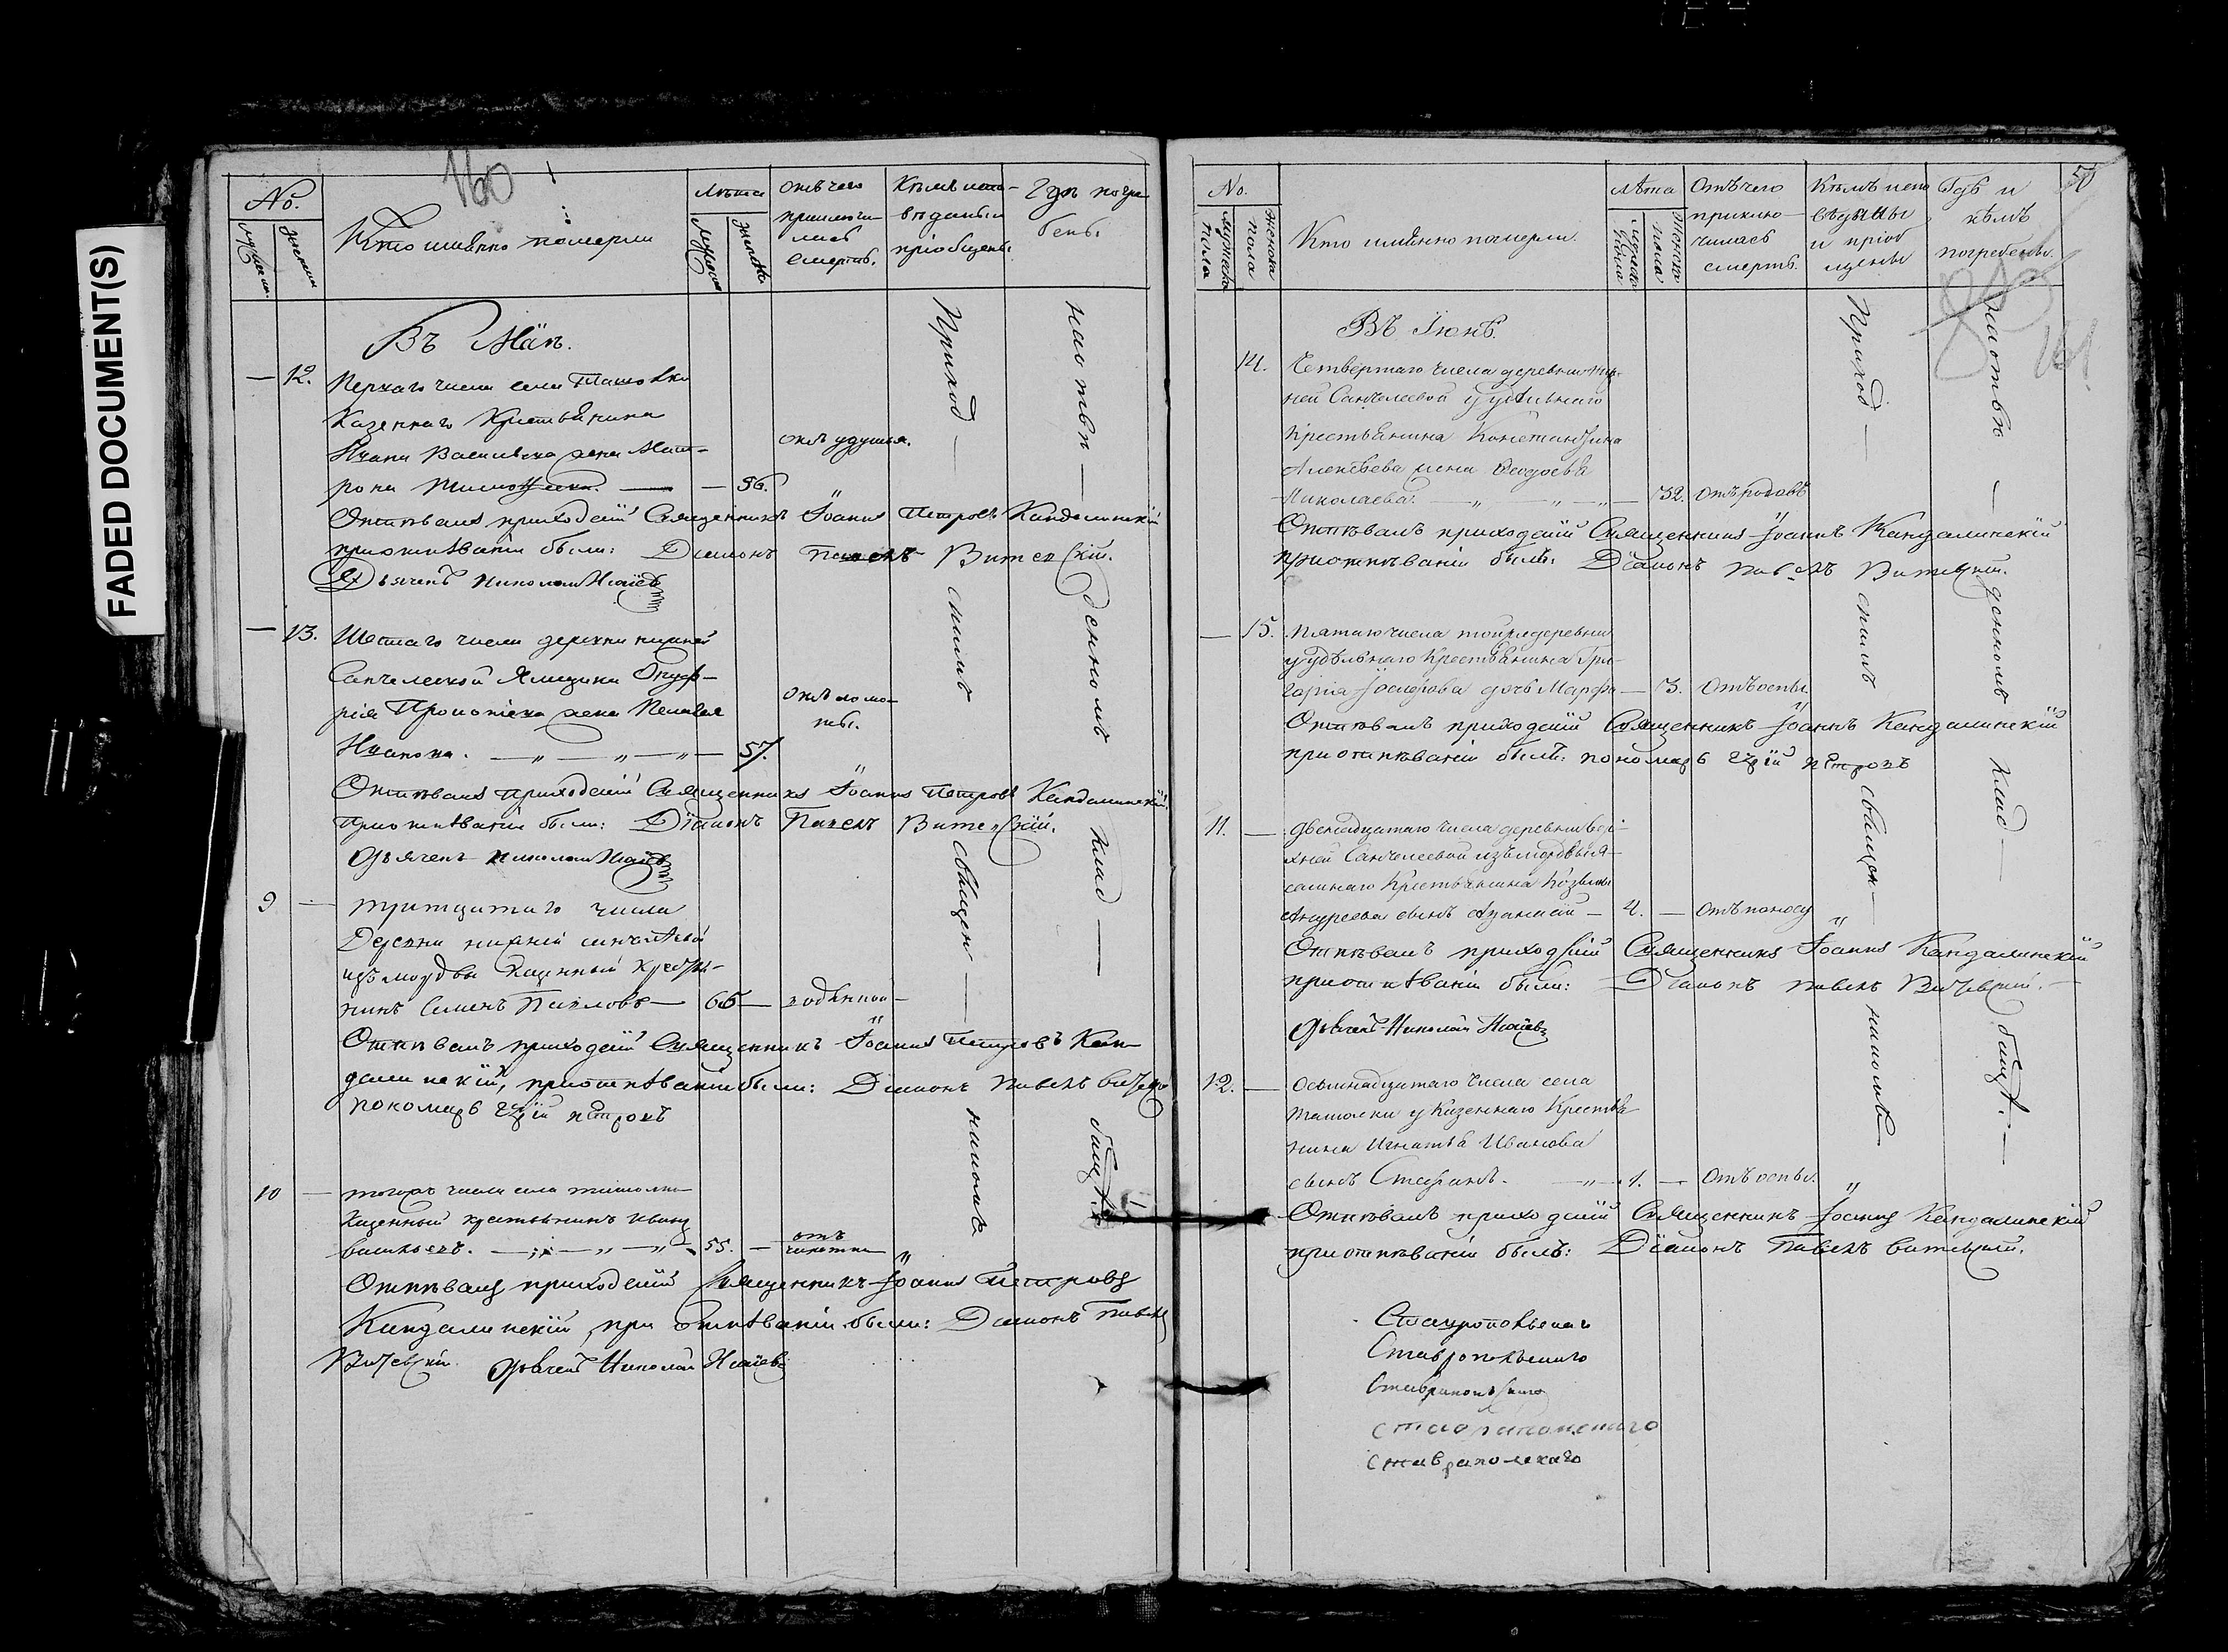 FADED DOCUMENT(S)
160
No.
Кто именно померли
Лѣта
Отъ чего приключилась смерть.
Кѣмъ исповѣданы пріобщены
Гдѣ погребены
Въ Маѣ.
— 12. Перваго числа села Ташолки
Казеннаго Крестьянина
Ивана Васильева жена Мат-
рона — — 56. отъ удушья.
Отпѣвалъ приходскій Священникъ Іоаннъ Петровъ Кандалинскій
приотпѣваніи были: Діаконъ Павелъ Витевскій.
Дьячекъ Николай Исаїевъ
— 13. Шестаго числа деревни нижней
Санчелеевой Ануф-
рія Прокопіева жена Пелагея
Иванова. — „ — „ — „ — 57. отъ ломоты.
Отпѣвалъ приходскій Священникъ Іоаннъ Петровъ Кандалинскій
Приотпѣваніи были: Діаконъ Павелъ Витевскій.
Дьячекъ Николай Исаїевъ
9 — тритцатаго числа
Деревни нижней санчелѣевой
изъ мордвы казенный кресть-
нинъ Семенъ Павловъ — 65 —
Отпѣвалъ приходскій Священникъ Іоаннъ Петровъ Кан-
далинскій, приотпѣваніи были: Діаконъ Павелъ
пономарь Петровъ
10 — тогожъ числа села ташолки
Казенный крестьянинъ Иванъ
васильевъ. — „ — „ — „ — 55. — отъ чихотки
Отпѣвалъ приходскій Священникъ Іоаннъ Петровъ
Кандалинскій, при отпѣваніи были: Діаконъ Павелъ
Витевскій. Дьячекъ Николай Исаїевъ
Приход — скимъ священ — никомъ
на ютвѣ — денномъ клад — бищѣ.
50
161
No.
Мужеска пола
Женска пола
Кто имѣнно померли.
Лѣта
Мужеска пола
Женска пола
Отъ чего приклю-
чилась
смерть.
Кѣмъ испо
вѣданы
и пріоб
щены
Гдѣ и
кѣмъ
погребены.
Въ Іюнѣ.
14. Четвертаго числа деревни ниж-
ней Санчелеевой у удѣльнаго
крестьянина Констанртина
Алексѣева жена Феодосья
Николаева. — „ — „ — „ — 32. Отъ родовъ
Отпѣвалъ приходскій Священникъ Іоаннъ Кандалинскій
приотпѣваніи былъ: Діаконъ Павелъ Витевскій.
— 15. Пятаго числа тойжедеревни
у удѣльнаго Крестьянина Гри-
горія Іосифова дочь Марфа — 3. Отъ оспы.
Отпѣвалъ приходскій Священникъ Іоаннъ Кандалинскій
приотпѣваніи былъ: пономарь Петровъ
11. — двенадцатаго числа деревни вер-
хней Санчелеевой изъ мордвы я-
сашнаго Крестьянина Козьмы
Андреева сынъ Афанасій — 4. — Отъ поносу
Отпѣвалъ приходскій Священникъ Іоаннъ Кандалинскій
приотпѣваніи были: Діаконъ Павелъ Витевскій.
Дьячекъ Николай Исаїевъ
12. — Осьмнадцатаго числа села
Ташолки у Казеннаго Крестья-
нина Игнатья Иванова
сынъ Стефанъ. — „ — 1. — Отъ оспы.
Отпѣвалъ приходскій Священникъ Іоаннъ Кандалинскій
приотпѣваніи былъ: Діаконъ Павелъ Витевскій.
Приход — скимъ священ — никомъ
денномъ клад — бищѣ. —
Ставропольскаго
Ставропольскаго
Ставропольскаго
Ставрапольскаго
Ставрапольскаго